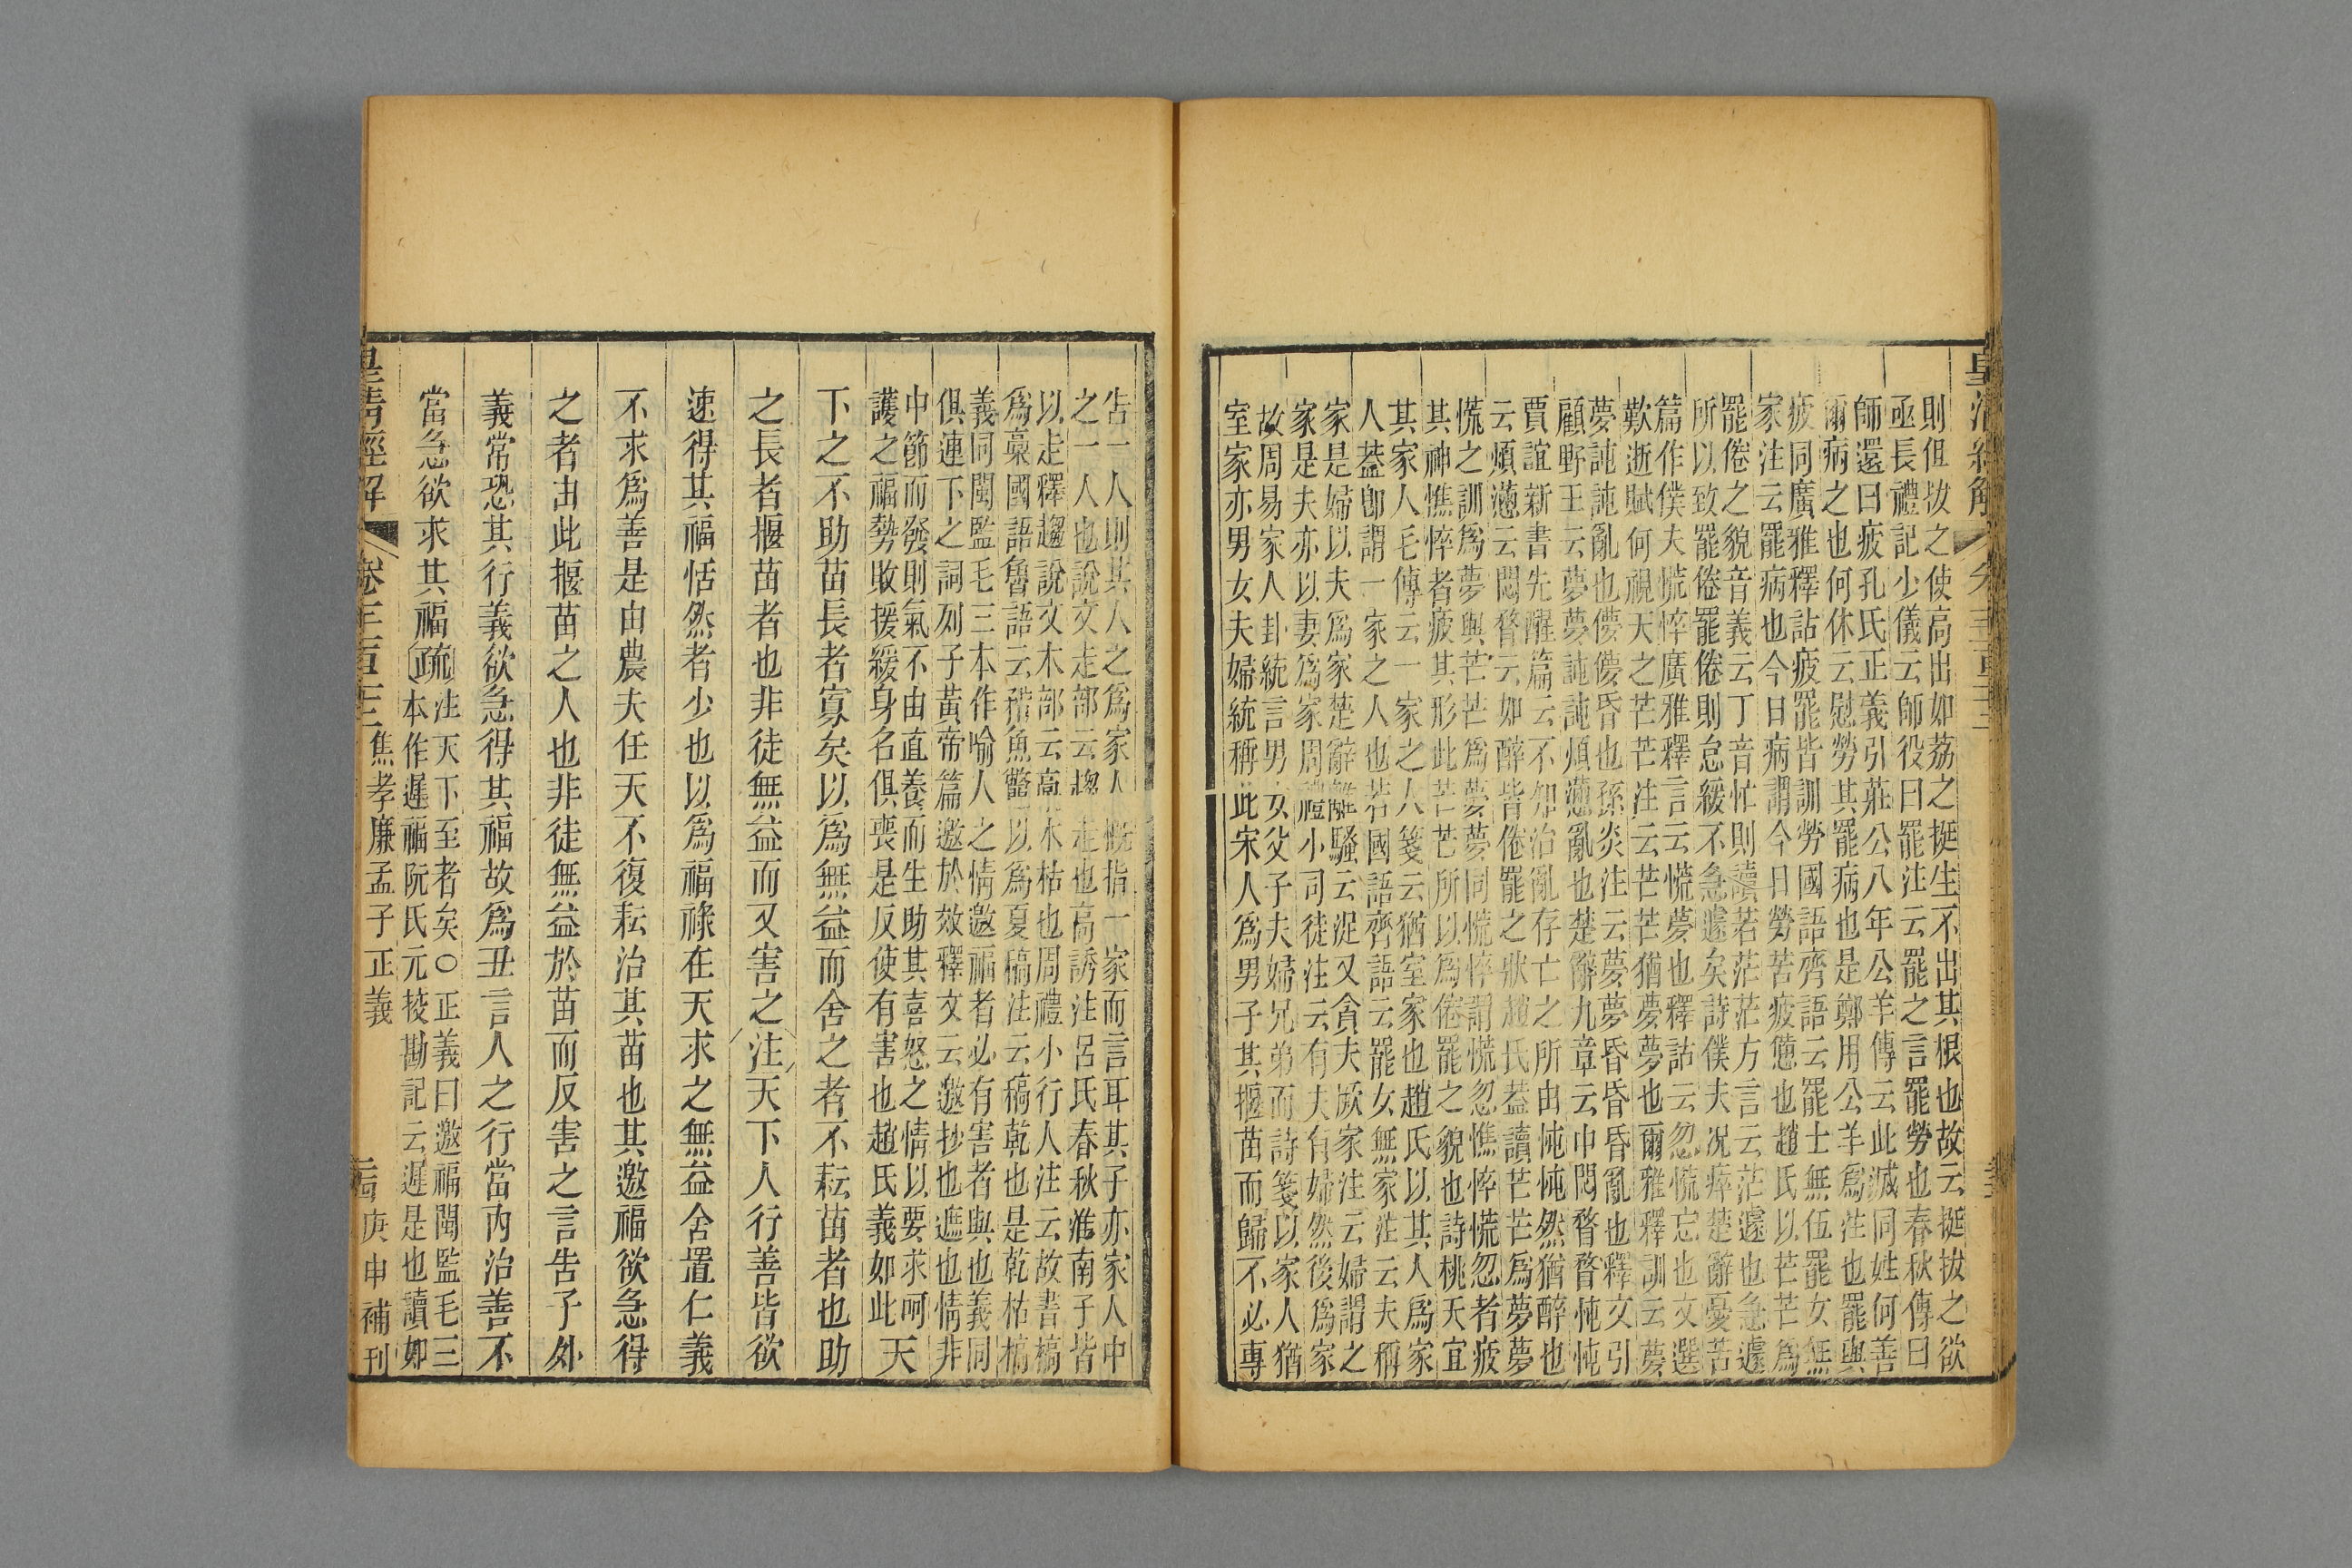 則但拔之使高出如茘之挺生不出其根也故云挺拔之欲
亟長禮記少儀云師役曰罷注云罷之言罷勞也春秋傳曰
師還曰疲孔氏正義引莊公八年公羊傳云此滅同姓何善
爾病之也何休云慰勞其罷病也是鄭用公羊爲注也罷與
疲同廣雅釋詁疲罷皆訓勞國語齊語云罷士無伍罷女無
家注云罷病也今日病謂今日勞苦疲憊也趙氏以芒芒爲
罷倦之貌音義云丁音忙則讀若茫茫方言云茫遽也急遽
所以致罷倦罷倦則怠緩不急遽矣詩僕夫况瘁楚辭憂苦
篇作僕夫慌悴廣雅釋言云慌夢也釋詁云忽慌忘也文選
歎逝賦何視天之芒芒注云芒芒猶夢夢也爾雅釋訓云夢
夢訰訰亂也儚儚昏也孫炎注云夢夢昏昏亂也釋文引
顧野王云夢夢訰訰煩懣亂也楚辭九章云中悶瞀瞀忳忳
賈誼新書先醒篇云不知治亂存亡之所由忳忳然猶醉也
云煩懣云悶瞀云如醉皆倦罷之狀趙氏葢讀芒芒爲夢夢
慌之訓爲夢與芒芒爲夢夢同慌悴謂慌忽憔悴慌忽者疲
其神憔悴者疲其形此芒芒所以爲倦罷之貌也詩桃夭宜
其家人毛傳云一家之人箋云猶室家也趙氏以其人爲家
人葢卽謂一家之人也若國語齊語云罷女無家注云夫稱
家是婦以夫爲家楚辭離騷云浞又貪夫厥家注云婦謂之
家是夫亦以妻爲家周禮小司徒注云有夫有婦然後爲家
故周易家人卦統言男女父子夫婦兄弟而詩箋以家人猶
室家亦男女夫婦統稱此宋人爲男子其揠苗而歸不必專
告一人則其人之爲家人槪指一家而言耳其子亦家人中
之一人也說文走部云趨走也高誘注呂氏春秋淮南子皆
以走釋趨說文木部云槀木枯也周禮小行人注云故書槁
爲槀國語魯語云矠魚鼈以爲夏槁注云槁乾也是乾枯槁
義同閩監毛三本作喻人之情邀福者必有害者與也義同
俱連下之詞列子黃帝篇邀於效釋文云邀抄也遮也情非
中節而發則氣不由直養而生助其喜怒之情以要求呵
護之福勢敗援緩身名俱喪是反使有害也趙氏義如此天
下之不助苗長者寡矣以爲無益而舍之者不耘苗者也助
之長者揠苗者也非徒無益而又害之注天下人行善皆欲
速得其福恬然者少也以爲福祿在天求之無益舍置仁義
不求爲善是由農夫任天不復耘治其苗也其邀福欲急得
之者由此揠苗之人也非徒無益於苗而反害之言告子外
義常恐其行義欲急得其福故爲丑言人之行當內治善不
當急欲求其福疏注天下至者矣○正義曰邀福閩監毛三
本作遲福阮氏元挍勘記云遲是也讀如
皇清經解 卷三百三 焦孝廉孟子正義 庚申補刊